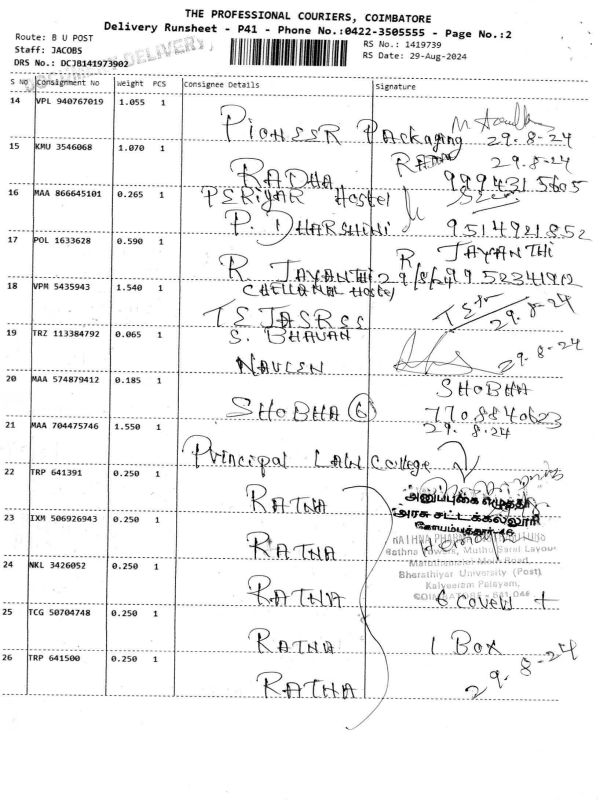 THE PROFESSIONAL COURIERS, COIMBATORE
Delivery Runsheet - P41 - Phone No.:0422-3505555 - Page No.:2
Route: B U POST
Staff: JACOBS
DRS No.: DCJB141973902
RS No.: 1419739
RS Date: 29-Aug-2024
S NO Consignment No Weight PCS Consignee Details Signature
14 VPL 940767019 1.055 1
PIONEER Packaging 29.8-24
15 KMU 3546068 1.070 1
29.8-24
RADHA 9994315605
16 MAA 866645101 0.265 1
PERIYAR Hostel
P. DHARSHINI 9514921852
17 POL 1633628 0.590 1
R. JAYANTHI
R. JAYANTHI 29/8/24 9952341912
18 VPM 5435943 1.540 1
Hostel
TEJASREE 29.8-24
19 TRZ 113384792 0.065 1
S. BHAVAN
NAVEEN 29.8-24
20 MAA 574879412 0.185 1
SHOBHA
SHOBHA 6 7708840623
21 MAA 704475746 1.550 1
29.8.24
Principal LAW College
22 TRP 641391 0.250 1
RATNA
அனுப்புகை எழுத்தர்
அரசு சட்டக்கல்லூரி
கோயம்புத்தூர்-46
23 IXM 506926943 0.250 1
RATNA
Rathna Towers, Muthu Layout
Road
24 NKL 3426052 0.250 1
Bharathiyar University (Post)
Palayam,
COIMBATORE - 641 046
RATNA 6 cover +
25 TCG 50704748 0.250 1
RATNA 1 Box
26 TRP 641500 0.250 1
RATNA 29.8-24